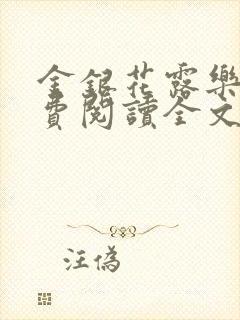 金銀花露樂
費閱讀全文
汪偽